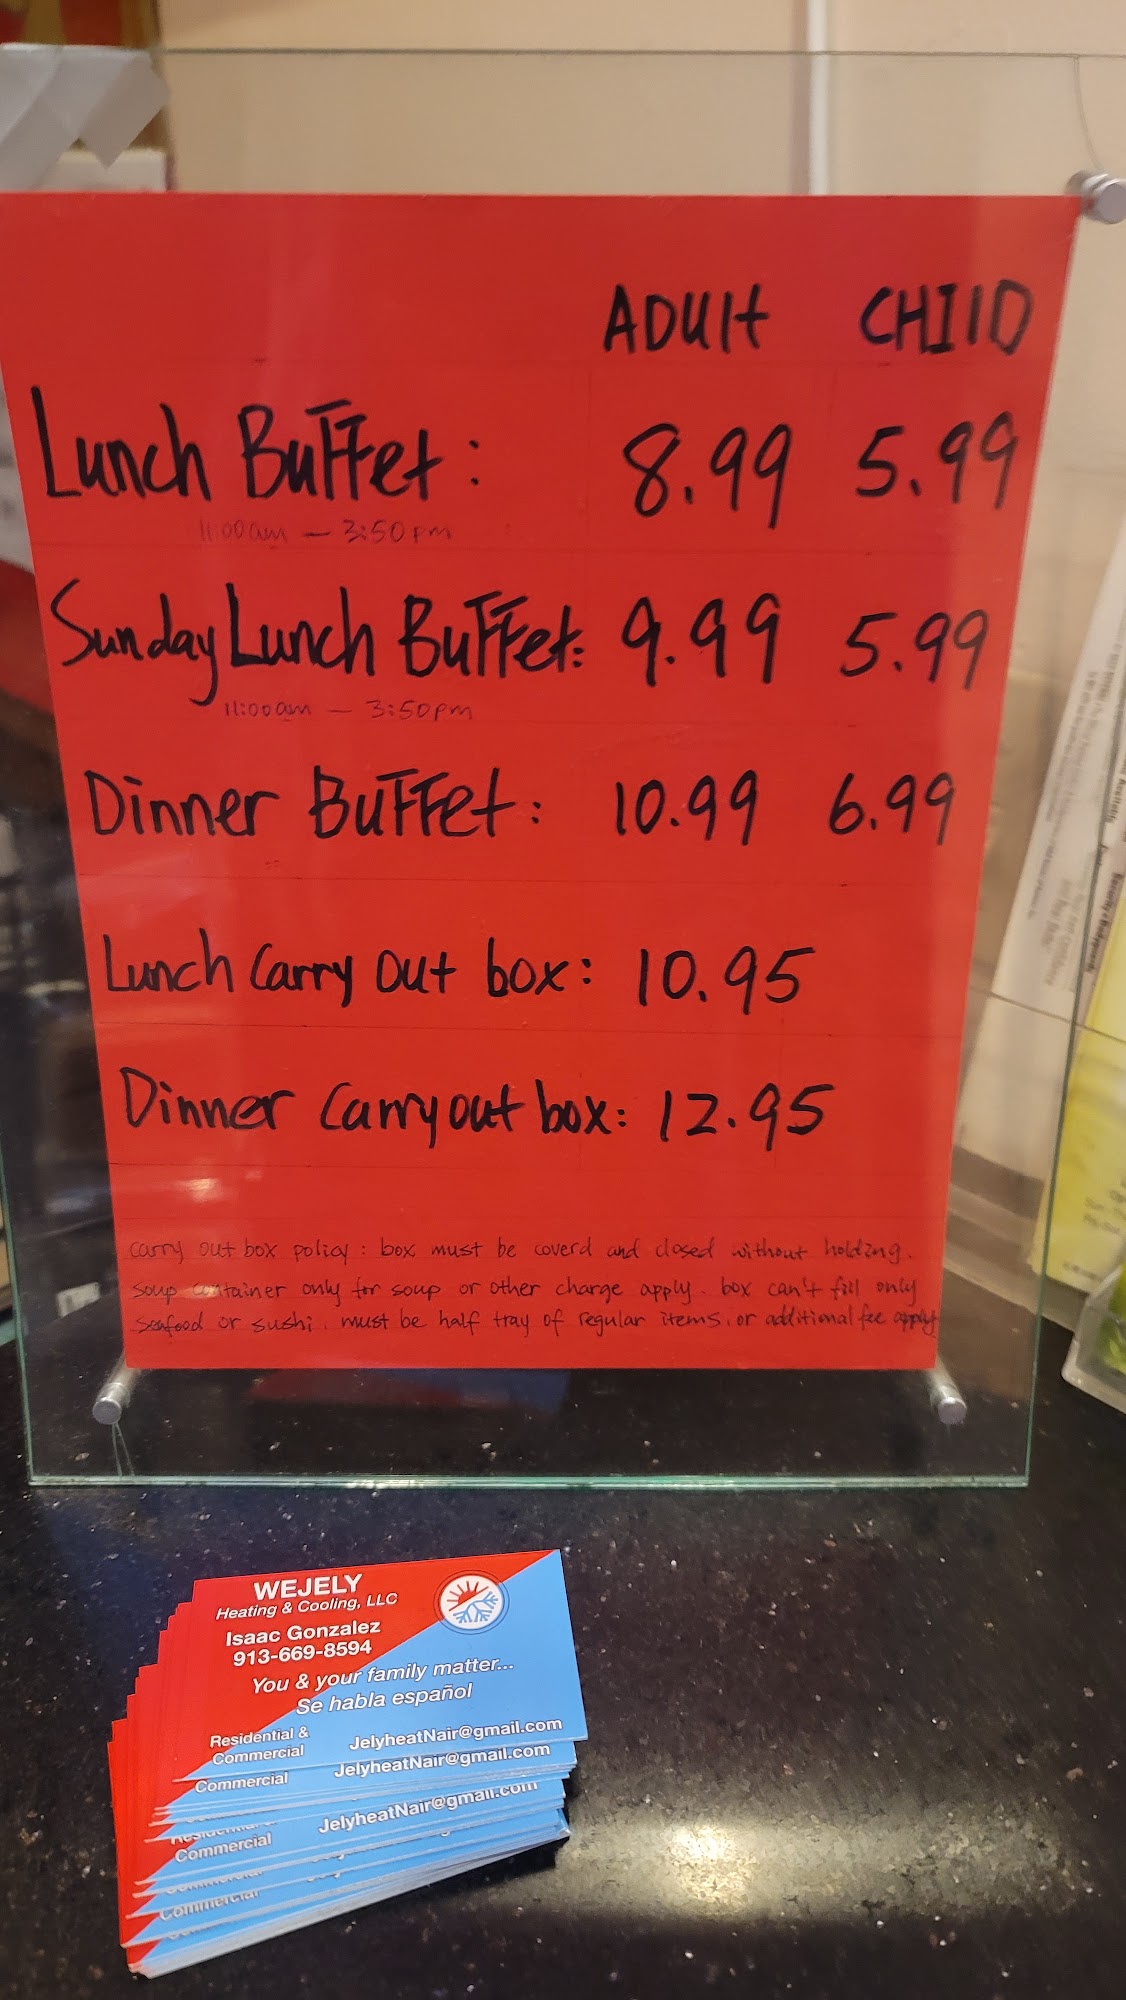 ADUlt CHIlD
Lunch Buffet: 8.99 5.99
11:00am — 3:50pm
Sunday Lunch Buffet: 9.99 5.99
11:00am — 3:50pm
Dinner Buffet: 10.99 6.99
Lunch Carry Out box: 10.95
Dinner Carry out box: 12.95
carry out box policy: box must be coverd and closed without holding.
soup container only for soup or other charge apply. box can't fill only
seafood or sushi. must be half tray of regular items. or additional fee apply
WEJELY
Heating & Cooling, LLC
Isaac Gonzalez
913-669-8594
You & your family matter...
Se habla español
Residential &
Commercial JelyheatNair@gmail.com
Commercial JelyheatNair@gmail.com
Commercial JelyheatNair@gmail.com
Commercial